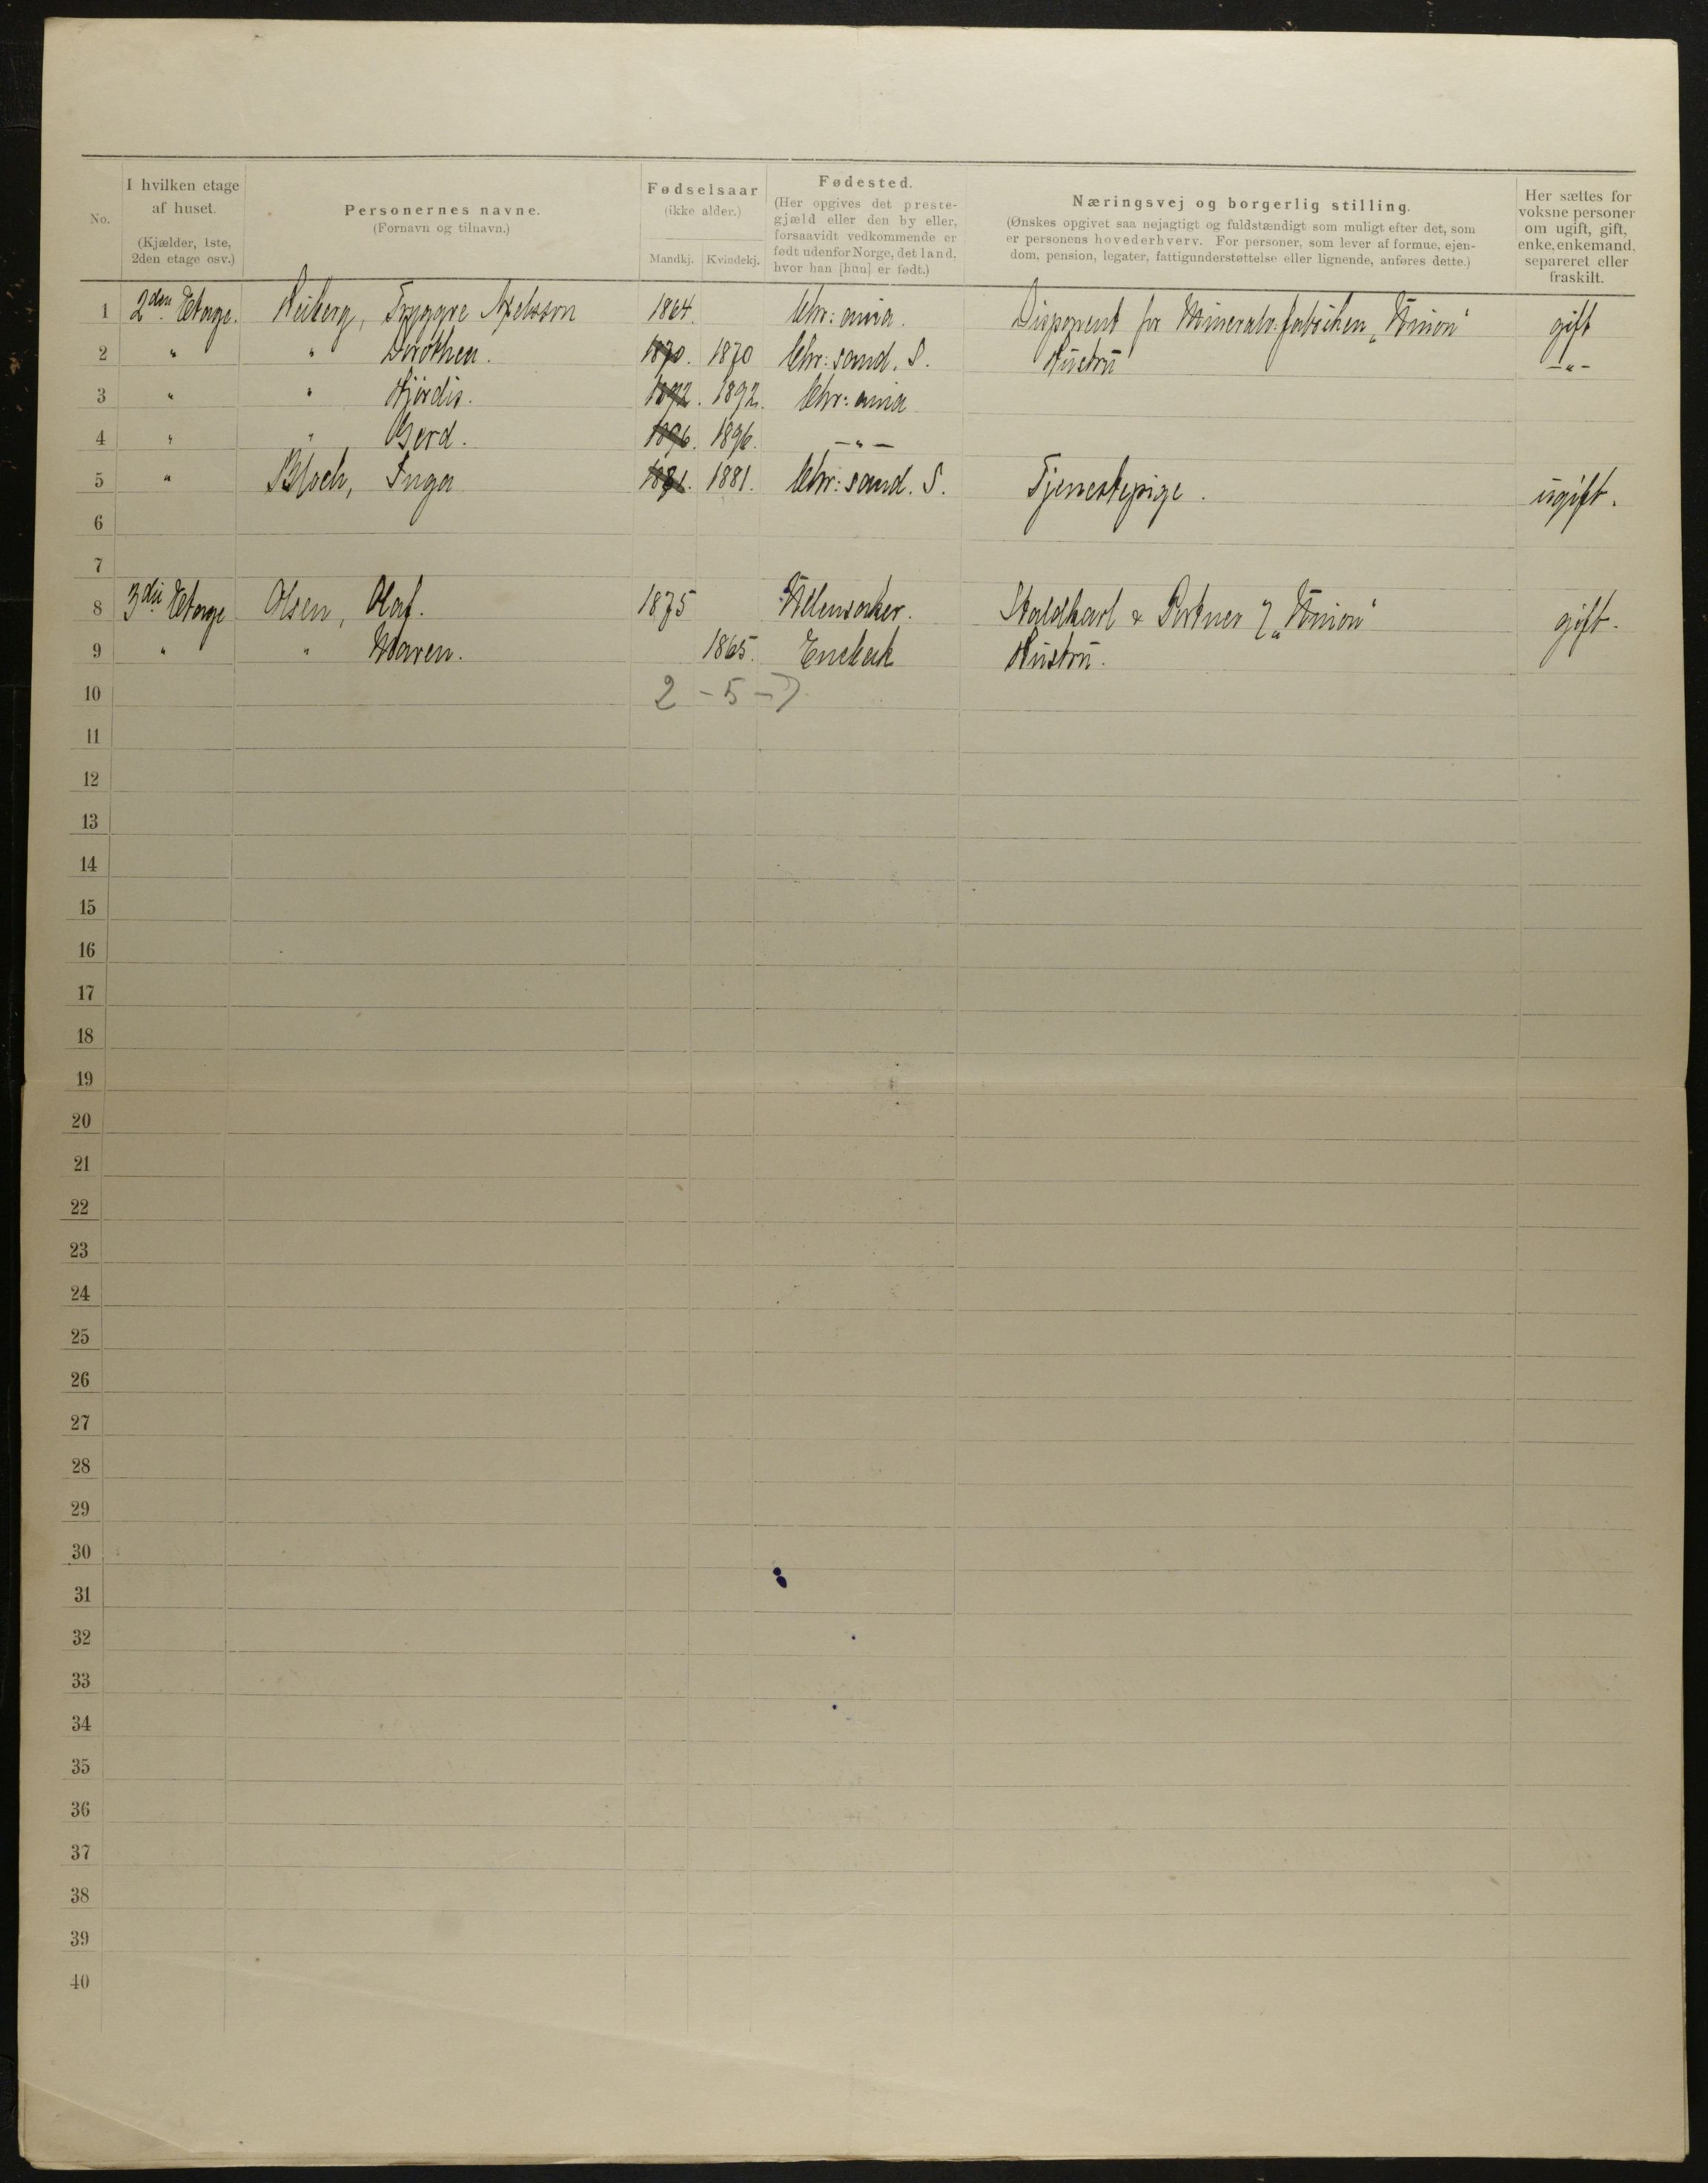 No.
I hvilken etage af huset.
(Kjælder, 1ste, 2den etage osv.)
Personernes navne.
(Fornavn og tilnavn.)
Fødselsaar
(ikke alder.)
Mandkj. Kvindekj.
Fødested.
(Her opgives det preste-
gjæld eller den by eller,
forsaavidt vedkommende er
født udenfor Norge, det land,
hvor han [hun] er født.)
Næringsvej og borgerlig stilling.
(Ønskes opgivet saa nøjagtigt og fuldstændigt som muligt efter det, som
er personens hovederhverv. For personer, som lever af formue, ejen-
dom, pension, legater, fattigunderstøttelse eller lignende, anføres dette.)
Her sættes for
voksne personer
om ugift, gift,
enke, enkemand,
separeret eller
fraskilt.
1 2den Etage. Heiberg, Tryggve Axelsson 1864. Chr:ania. Disponent for Mineralv.fabrikken „Union" gift
2 " " Dorothea. 1870. 1870 Chr:sand. S. Hustru -"-
3 " " Hjördis. 1892. 1892. Chr:ania
4 " " Gerd. 1896. 1896. -"-
5 " Bloch, Inga 1881. 1881. Chr:sand. S. Tjenestepige. ugift.
6
7
8 3die Etage Olsen, Olaf. 1875 Ullensaker. Staldkarl & Portner „Union" gift.
9 " " Maren. 1865. Enebak Hustru.
10 2 - 5 - 7
11
12
13
14
15
16
17
18
19
20
21
22
23
24
25
26
27
28
29
30
31
32
33
34
35
36
37
38
39
40